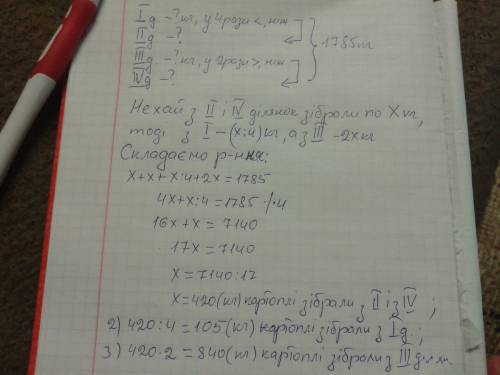 I д -? кг, у 4 рази <, ніж
II д -?
1785 кг
III д. -? кг, у 2 рази >, ніж
IV д -?
Нехай з II і IV ділянок зібрали по X кг,
тоді з I - (x:4) кг, а з III - 2x кг
Складаємо р-ння:
x+x+x:4+2x=1785
4x+x:4=1785 /·4
16x+x=7140
17x=7140
x=7140:17
x=420(кг) картоплі зібрали з II і з IV ;
2) 420:4=105(кг) картоплі зібрали з I д ;
3) 420·2=840(кг) картоплі зібрали з III ділян.